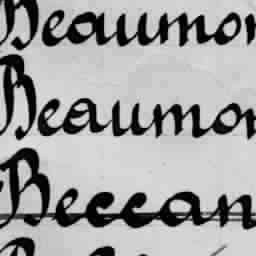 Beaumon
Beaumon
Beccan